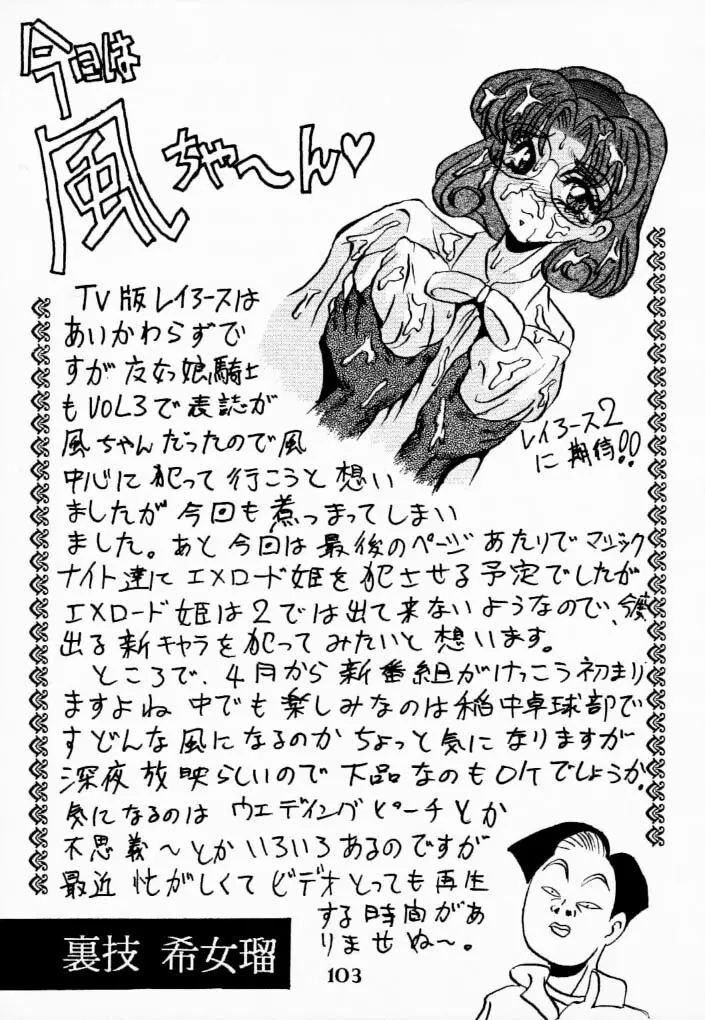 今日は
風ちゃ〜ん♡
TV版レイアースは
あいかわらずで
すが
娘騎士
もVOL3で表誌が
風ちゃんだったので風
中心に犯って行こうと想い
ましたが今回も煮つまってしまい
ました。あと今回は最後のページあたりでマジック
ナイト達にエメロード姫を犯させる予定でしたが
エメロード姫は2では出て来ないようなので、
出る新キャラを犯ってみたいと想います。
ところで、4月から新番組がけっこう初まり
ますよね中でも楽しみなのは稲中卓球部で
すどんな風になるのかちょっと気になりますが
深夜放映らしいので下品なのもOKでしょうか。
気になるのはウエディングピーチとか
不思議〜とかいろいろあるのですが
最近忙がしくてビデオとっても再生
する時間があ
りませぬ〜。
レイアース2
に期待!!
裏技 希女瑠
103